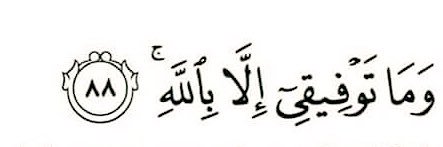 وَمَا تَوْفِيقِىٓ إِلَّا بِٱللَّهِ ۚ ٨٨